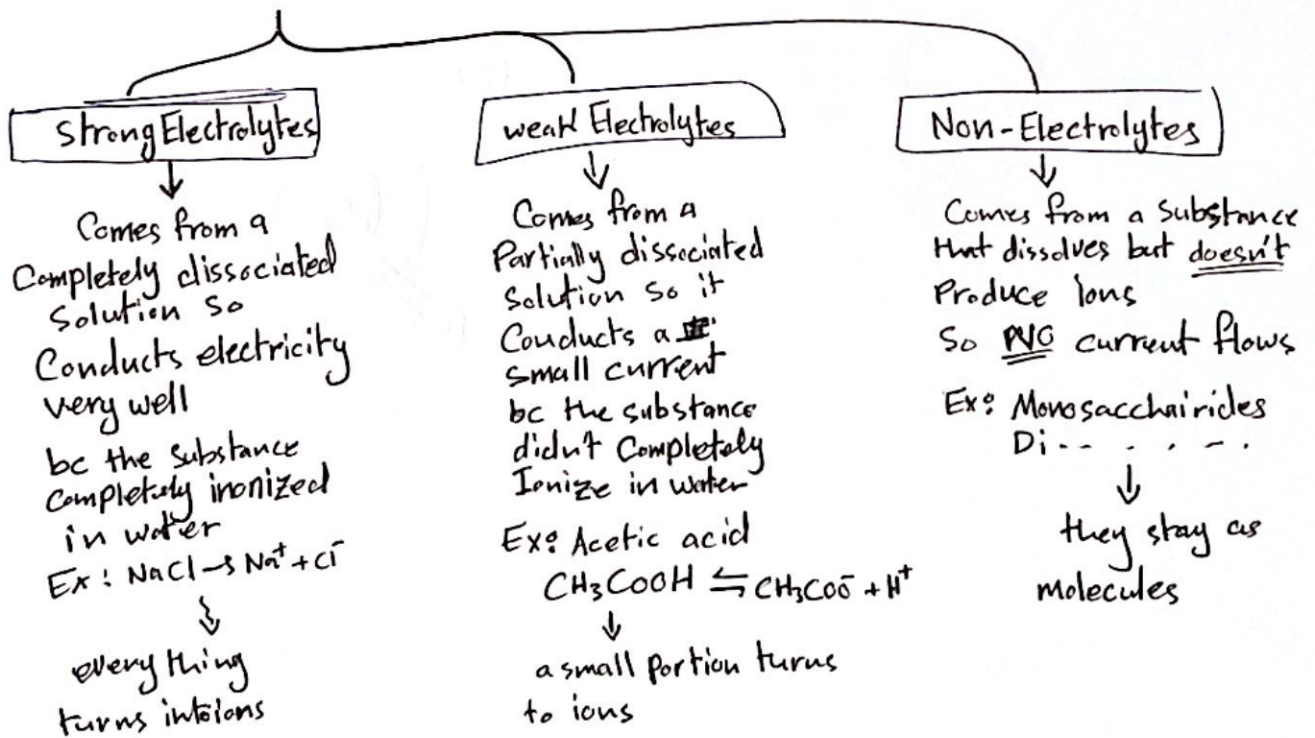 Strong Electrolytes
Comes from a
Completely dissociated
Solution so
Conducts electricity
very well
bc the substance
completely inonized
in water
Ex: NaCl → Na⁺ + Cl⁻
everything
turns into ions
weak Electrolytes
Comes from a
Partially dissociated
Solution so it
Conducts a
small current
bc the substance
didn't Completely
Ionize in water
Ex: Acetic acid
CH₃COOH ⇌ CH₃COO⁻ + H⁺
a small portion turns
to ions
Non-Electrolytes
Comes from a Substance
that dissolves but doesn't
Produce Ions
So NO current flows
Ex: Monosacchairides
Di-- . . - .
they stay as
molecules